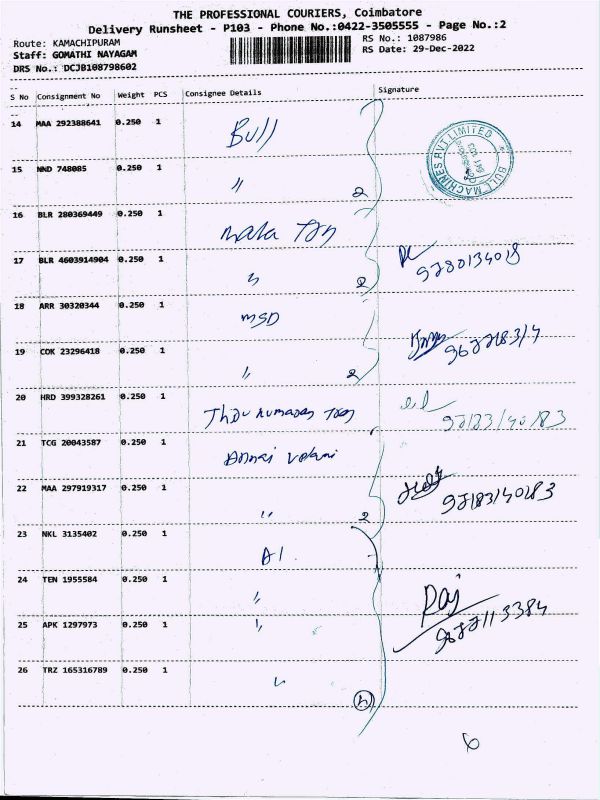 THE PROFESSIONAL COURIERS, Coimbatore
Delivery Runsheet - P103 - Phone No.:0422-3505555 - Page No.:2
Route: KAMACHIPURAM RS No.: 1087986
Staff: GOMATHI NAYAGAM RS Date: 29-Dec-2022
DRS No.: DCJB108798602
S No Consignment No Weight PCS Consignee Details Signature
14 MAA 292388641 0.250 1 Bull
BULL MACHINES PVT LIMITED
15 NND 748085 0.250 1 " 2
16 BLR 280369449 0.250 1
17 BLR 4603914904 0.250 1 " 2
18 ARR 30320344 0.250 1 MSD
19 COK 23296418 0.250 1 " 2
20 HRD 399328261 0.250 1
21 TCG 20043587 0.250 1 Annai
22 MAA 297919317 0.250 1 " 2
23 NKL 3135402 0.250 1 A1.
24 TEN 1955584 0.250 1 " Raj
25 APK 1297973 0.250 1 "
26 TRZ 165316789 0.250 1 "
4
6